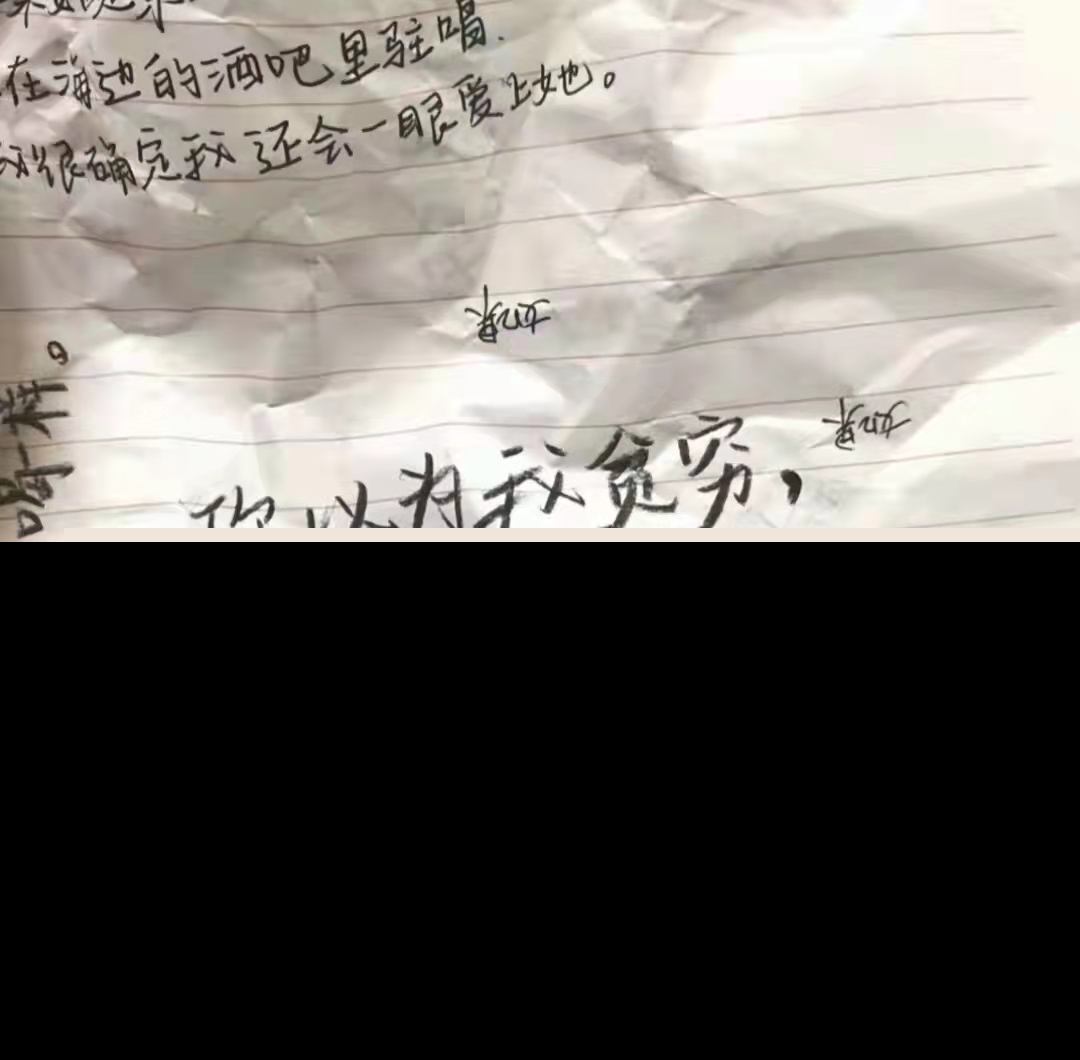 在海边的酒吧里驻唱.
我很确定我还会一眼爱上她。
一样。
你以为我贫穷,
如果